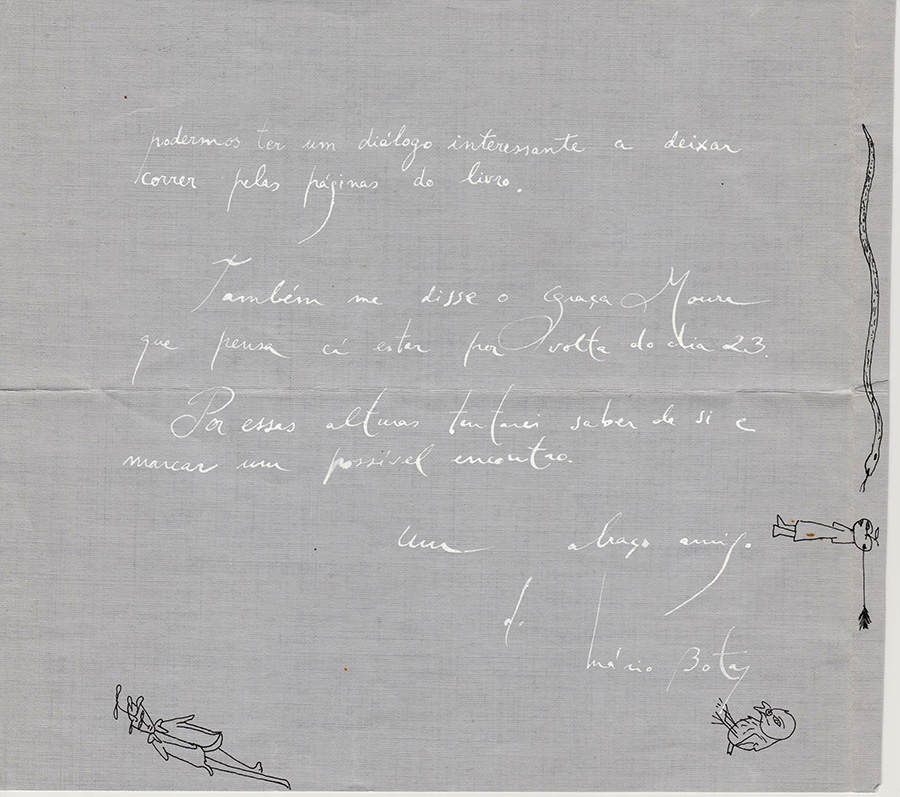 podermos ter um diálogo interessante a deixar
correr pelas páginas do livro.
Também me disse o Graça Moura
que pensa cá estar por volta do dia 23.
Por essas alturas tentarei saber de si e
marcar um possível encontro.
Um abraço amigo.
do
Mário Botas